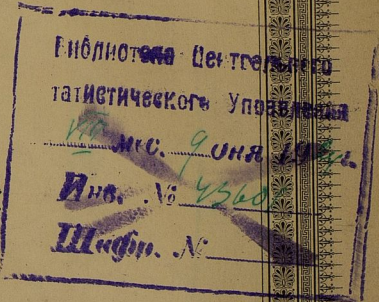 Библиотека Центрального
татистического Управления
VII мес. 9 дня 192
Инв. № 4360
Шифр. №